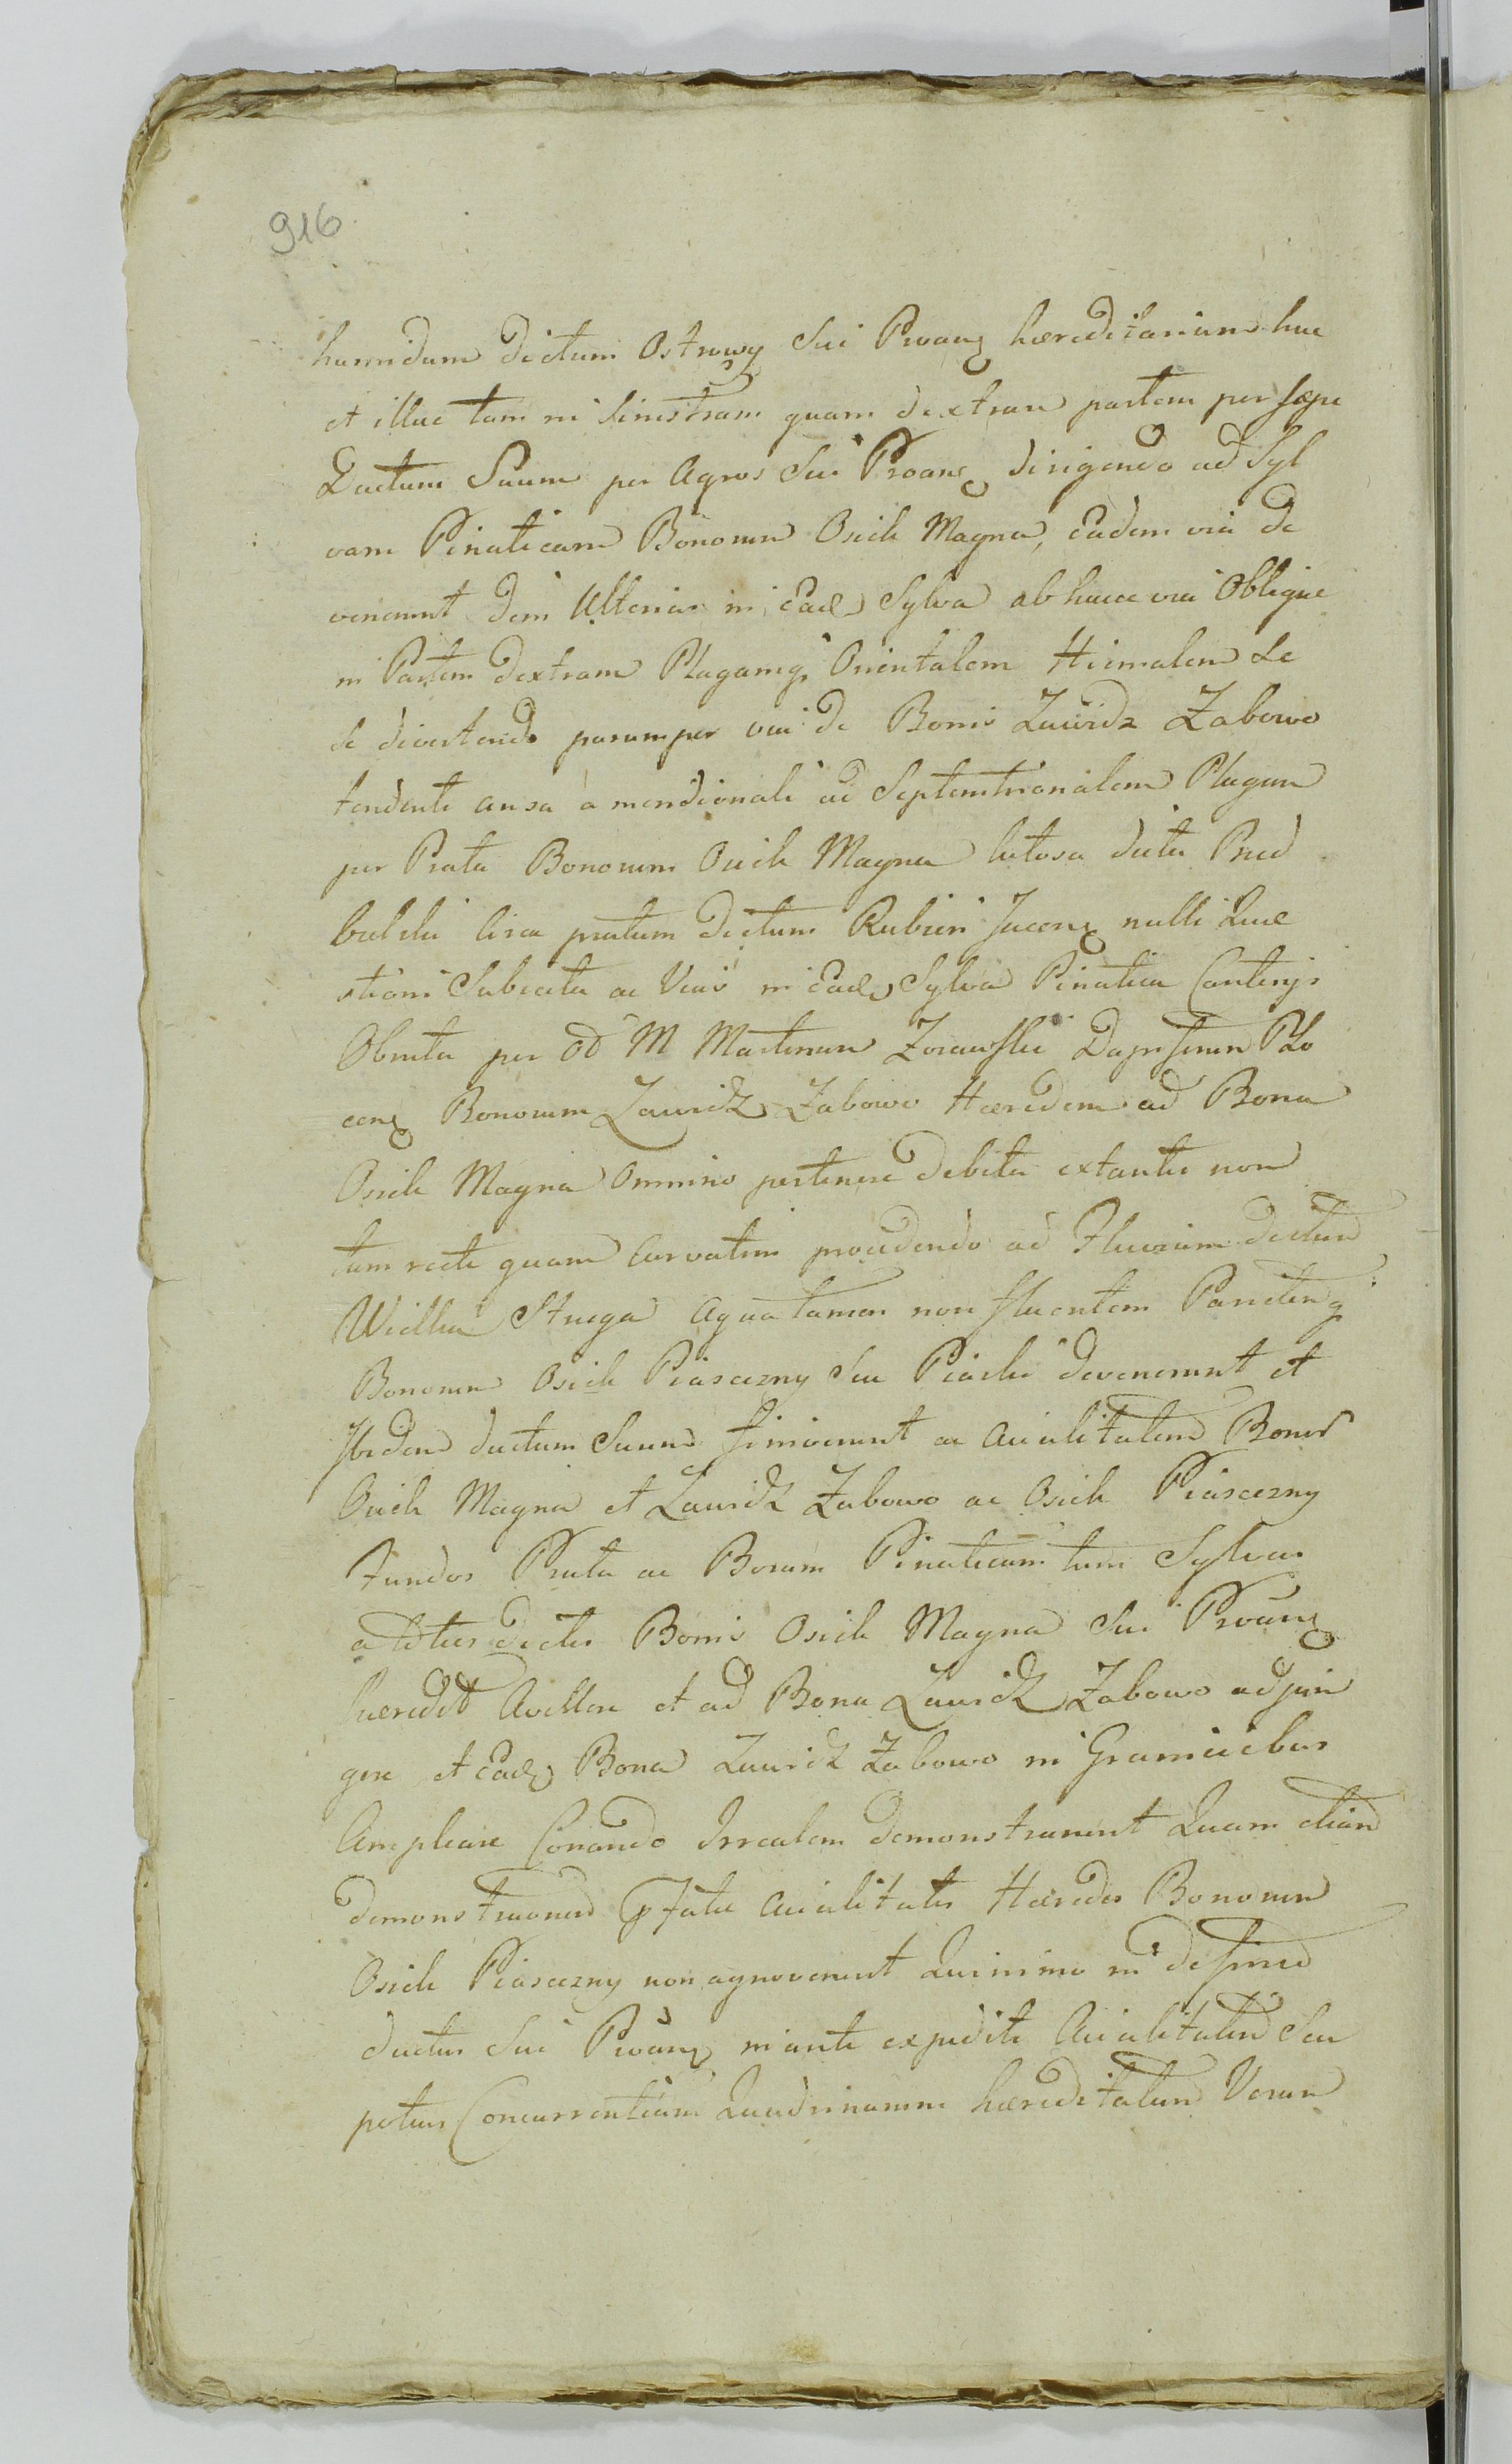 916
humidum dictum Ostrowy Sui Proanę hæreditarium huc
et illuc tam in Sinistram quam dextram partem per sæpe
Ductum Suum per Agros Sui Proanę dirigendo ad Syl
vam Pinaticam Bonorum Osiek Magna, eadem via de
venerunt dein Ulterius in eade Sylva ab hacce via Oblique
in Partem dextram Plagamq Orientalem Hiemalem Se
se divertendo parumper via de Bonis Zawidz Zabowo
tendente ausa a meridionali ad Septemtrionalem Plagam
per Prata Bonorum Osiek Magna lutosa dicta
circa pratum dictum Rubien Jacenę nulli Quæ
stioni Subiecta ac Vias in eade Sylva Pinatica
Obruta per OD M Martinum Zorawski Dapiferum Plo
cenę Bonorum Zawidz Zabowo Hæredem ad Bona
Osiek Magna Omnino pertinere debita extantia non
tam recte quam Curvatim procedendo ad Fluvium dictum
Wielka Struga Aqua tamen non fluentem
Bonorum Osiek Piaseczny Seu Piaski devenerunt et
Ibidem ductum Suum finiverunt ac Acialitatem Bonor
Osiek Magna et Zawidz Zabowo ac Osiek Piaseczny
Fundos Prata ac Boram Pinaticam tum Sylvas
a totius dictis Bonis Osiek Magna Sui Proanę
hæredit Avellere et ad Bona Zawidz Zabowo adjun
gere et eade Bona Zawidz Zabowo in Graniciebus
Ampliare Conando Irrealem demonstrarunt Quam etiam
demonstraonem pftatæ Acialitatis Hæredes Bonorum
Osiek Piaseczny non agnoverunt Quinimo in
ductus Sui Proanę in ante expedite Acialitatem Seu
potius Concurrentiam Quadrinarum hæreditatum Veram